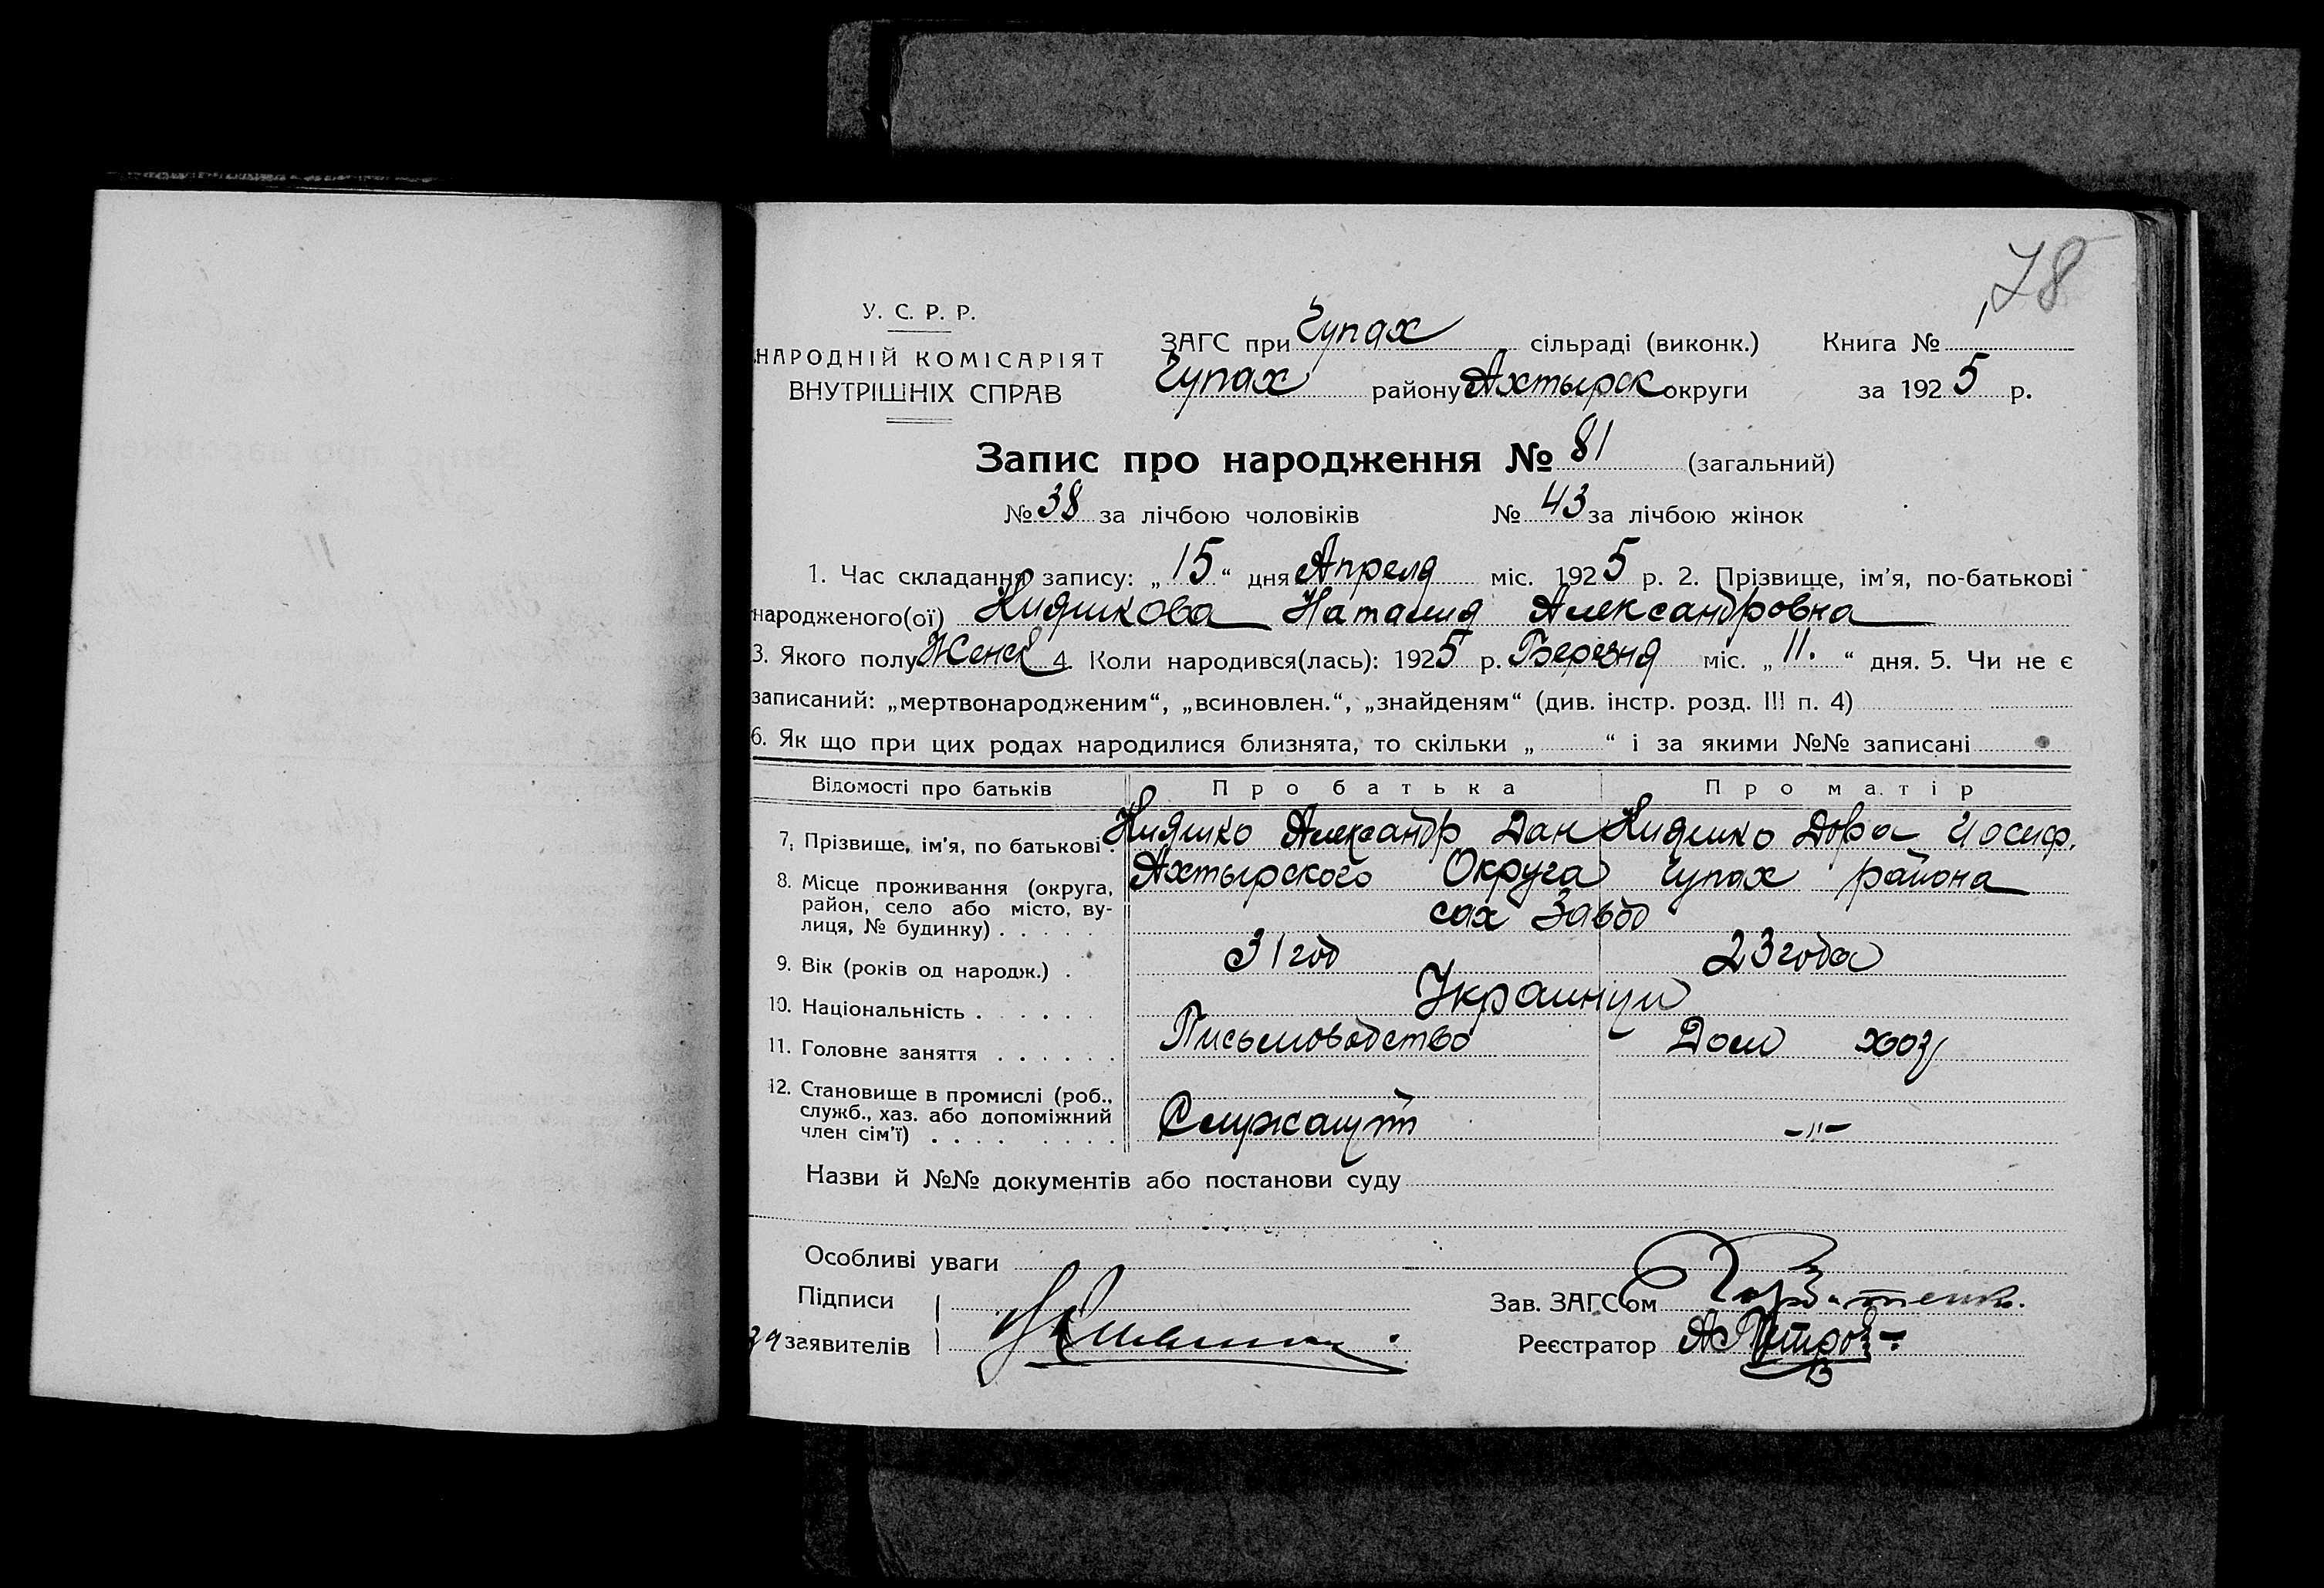 78
У. С. Р. Р.
НАРОДНІЙ КОМІСАРІЯТ
ВНУТРІШНІХ СПРАВ
ЗАГС при Чупах сільраді (виконк.) Книга № 1
Чупах району Ахтырск округи за 1925 р.
Запис про народження № 81 (загальний)
№ 38 за лічбою чоловіків № 43 за лічбою жінок
1. Час складання запису: „15“ дня Апреля міс. 1925 р. 2. Прізвище, ім'я, по-батькові
народженого(ої) Кияшкова Наталия Александровна
3. Якого полу Женск 4. Коли народився(лась): 1925 р. Березня міс. „11.“ дня. 5. Чи не є
записаний: „мертвонародженим“, „всиновлен.“, „знайденям“ (див. інстр. розд. III п. 4)
6. Як що при цих родах народилися близнята, то скільки „ “ і за якими №№ записані
Відомості про батьків Про батька Про матір
7. Прізвище, ім'я, по батькові. Кияшко Александр Дан Кияшко Дора Иосиф.
8. Місце проживання (округа, Ахтырского Округа Чупах района
район, село або місто, ву- сах Завод
лиця, № будинку) . . . . .
9. Вік (років од народж.) . 31 год 23 года
10. Національність . . . . . . Украинци
11. Головне заняття . . . . . . Письмоводство Дом хоз
12. Становище в промислі (роб.,
служб., хаз. або допоміжний Служащий -"-
член сім'ї) . . . . . . . .
Назви й №№ документів або постанови суду
Особливі уваги
Підписи Зав. ЗАГСом
за заявителів Реєстратор